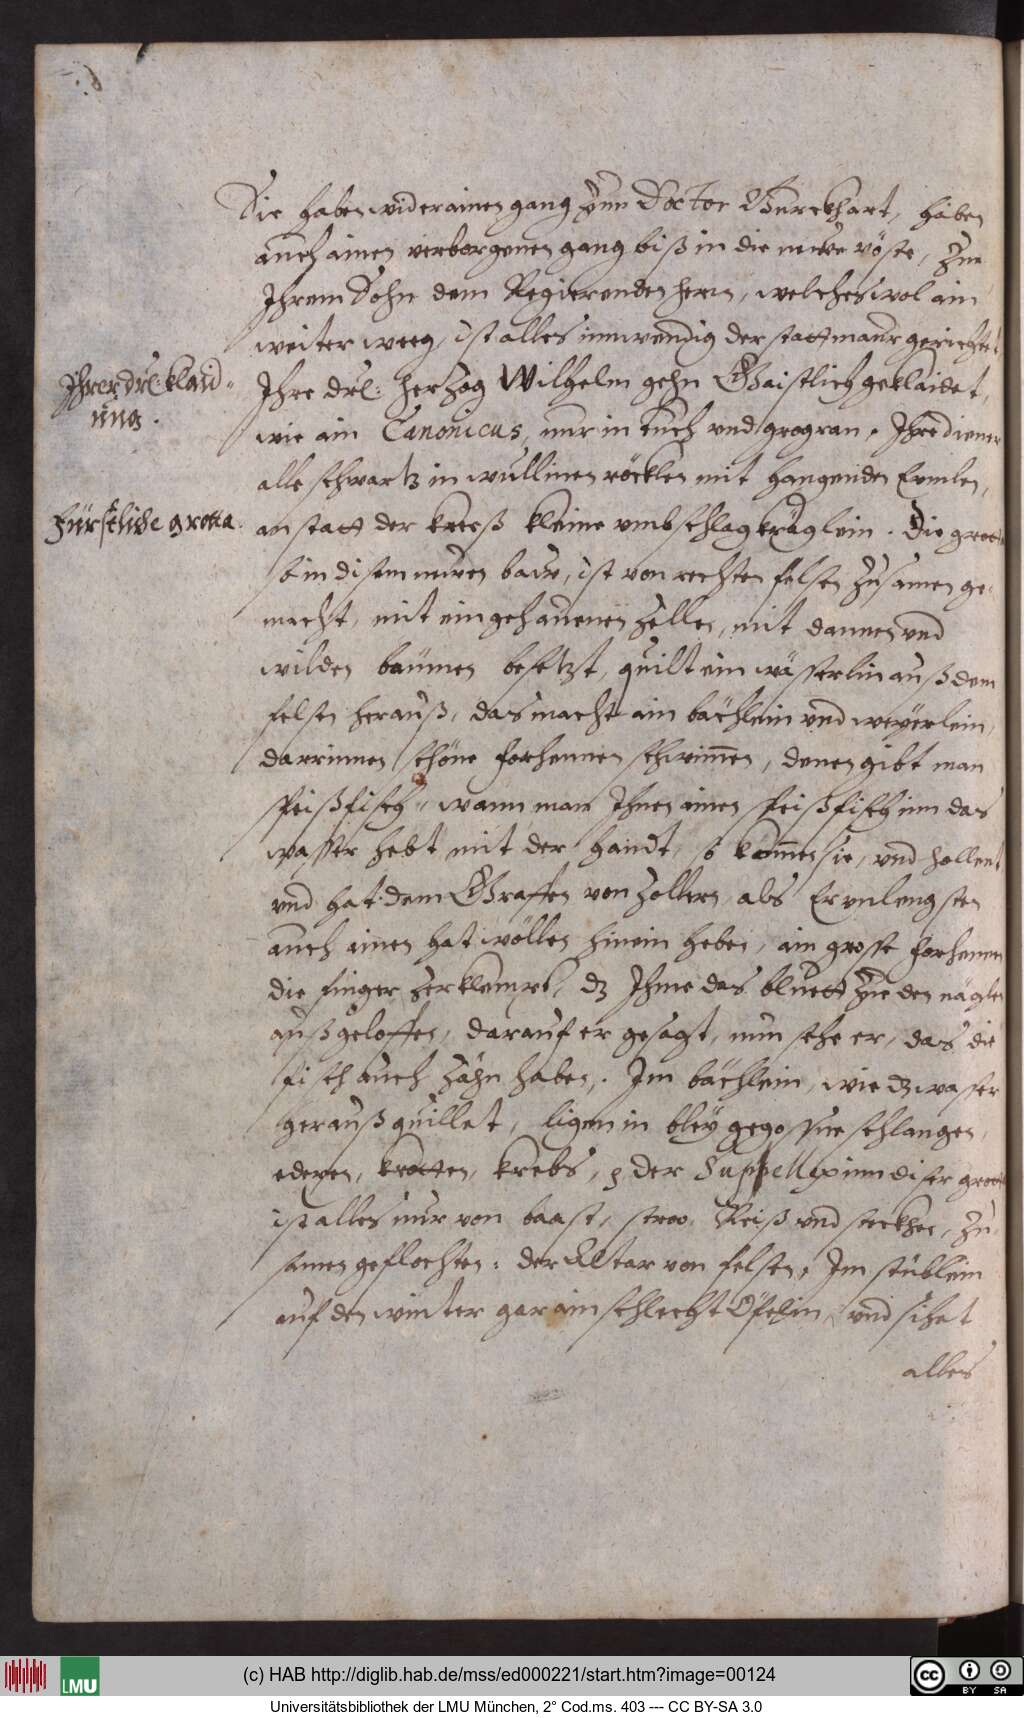 Sie haben wider ainen gang zum Doctor Burckhart, haben
auch ainen verborgenen gang biß in die newe vöste, zue
Ihrem Sohn dem Regierenden herrn, welches wol ain
weiter weeg, ist alles innwendig der stattmaur gerichtet
Ihrer drl: klaid-
ung.
Ihre drl: herzog Wilhelm gehn Gaistlich geklaidet,
wie ain Canonicus, nur in tuch vnd grogran. Ihre diener
alle schwartz in wullinen röcklen mit hangenden Ermlen,
Fürstliche grotta.
an statt der kreeß kleine vmbschlag kräglein. Die grotta
so in disem newen baw, ist von rechten felsen zusamen ge-
macht, mit eingehauenen zellen, mit dannen vnd
wilden baümen besetzt, quilt ein wässerlin auß dem
felsen herauß, das macht ain bächlein vnd weyerlein,
darrinnen schöne forhennen schwimen, denen gibt man
speißfisch, wann man Ihnen ainen speißfisch inn das
wasser hebt mit der handt, so komen sie, vnd hollens
vnd hat dem Graffen von Zollern, als Er vnlengsten
auch ainen hat wöllen hinein heben, ain grosse forhennen
die finger zerklempt, dz Ihme das bluett zue den nägeln
außgeloffen, darauf er gesagt, nun sehe er, das die
fisch auch zähn haben. Im bächlein, wie dz wasser
herauß quillet, ligen in bley gegossne schlangen,
edexen, krotten, krebs, der Suppellex inn diser grotta
ist alles nur von baast, stroo, Reiß vnd steckhen, zu-
samen geflochten: der Altar von felsen. Im stüblein
auf den winter gar ain schlecht Öfelin, vnd sihet
alles
(c) HAB http://diglib.hab.de/mss/ed000221/start.htm?image=00124
LMU
cc BY SA
Universitätsbibliothek der LMU München, 2° Cod.ms. 403 --- CC BY-SA 3.0